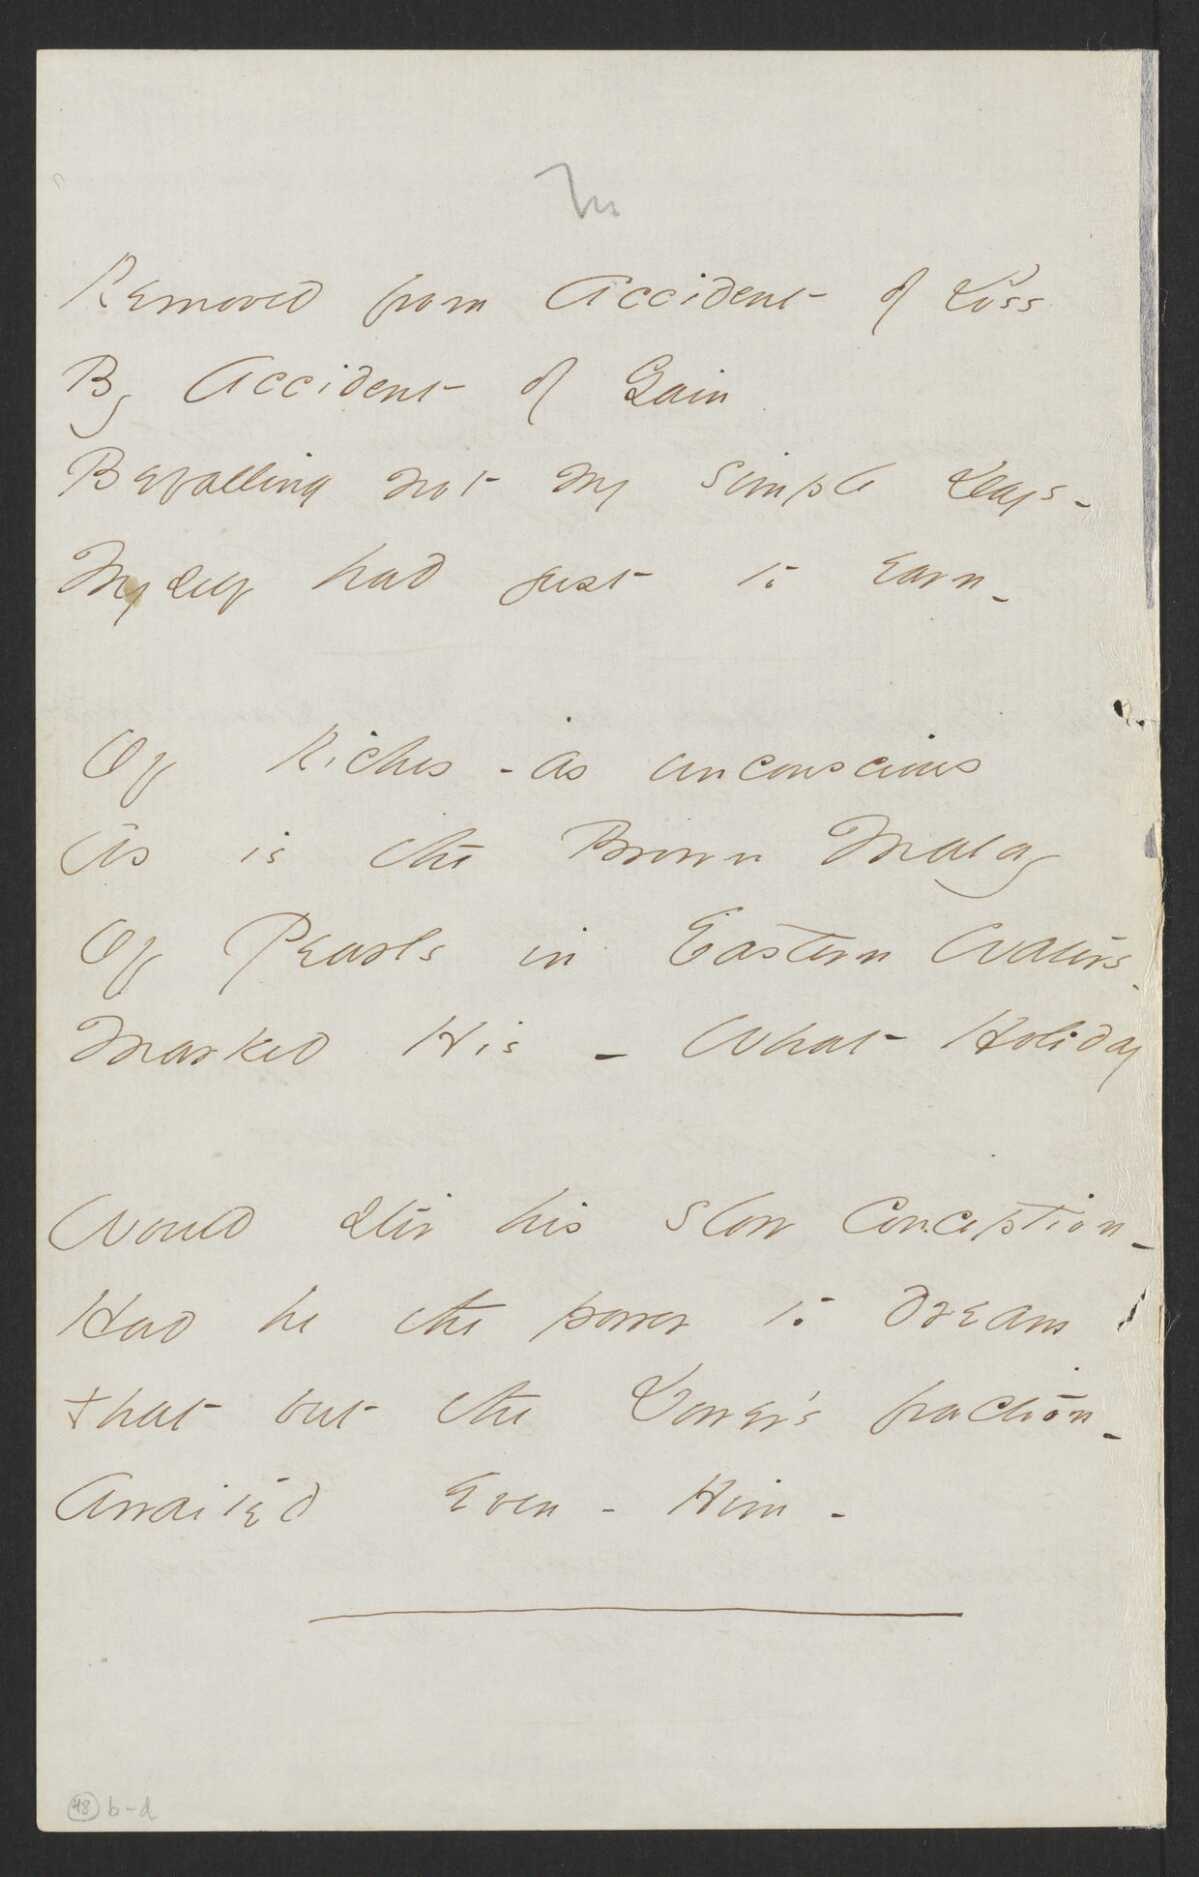 Removed from Accident of Loss
By Accident of Gain
Befalling not my simple Days -
Myself had just to earn -
Of Riches - as unconscious
As is the Brown Malay
Of Pearls in Eastern Waters -
Marked His - What Holiday
Would stir his slow Conception -
Had he the power to dream
That but the Dower's fraction -
Awaited Even - Him -
48 b-d